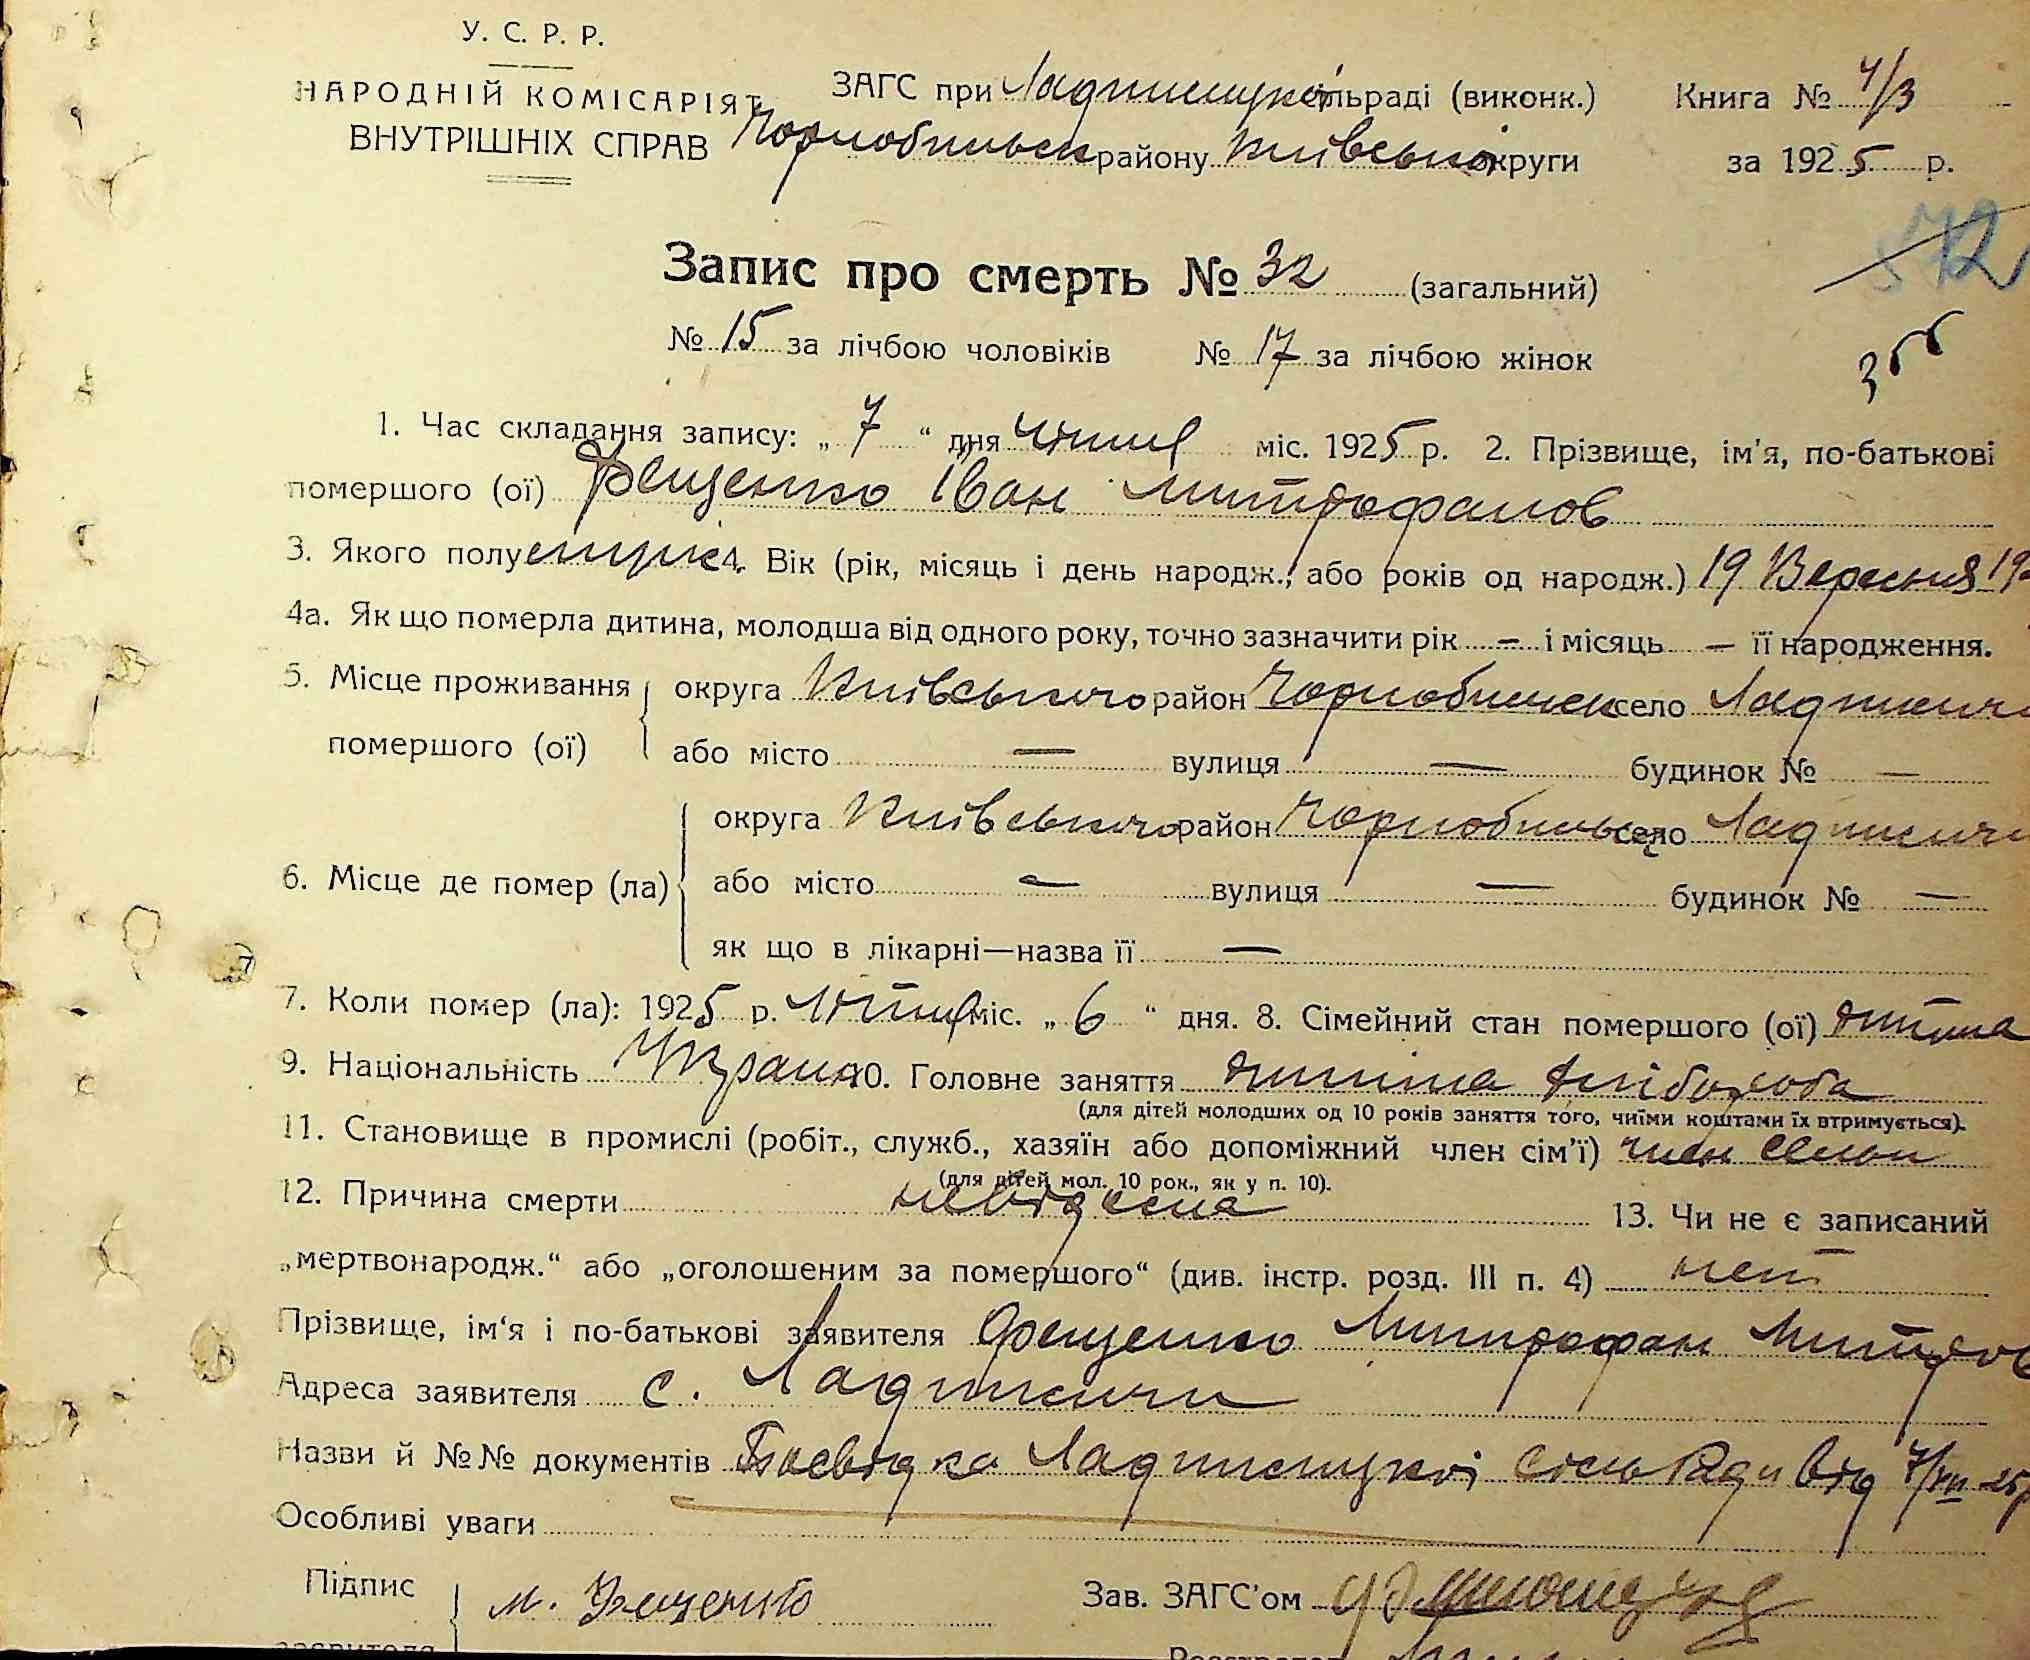 У. С. Р. Р.
НАРОДНІЙ КОМІСАРІЯТ
ВНУТРІШНІХ СПРАВ
ЗАГС при Ладижицкої сільраді (виконк.)
Чорнобильск району Київської округи
Книга № 4/3
за 1925 р.
572
Запис про смерть № 32 (загальний)
№ 15 за лічбою чоловіків № 17 за лічбою жінок
1. Час складання запису: „ 7 “ дня міс. 1925 р. 2. Прізвище, ім'я, по-батькові
помершого (ої) Фещенко Іван Митрофанов
3. Якого полу 4. Вік (рік, місяць і день народж., або років од народж.) 19 Вересня 19
4а. Як що померла дитина, молодша від одного року, точно зазначити рік — і місяць — її народження.
5. Місце проживання помершого (ої) округа Київського район Чорнобильск село Ладижичі
або місто — вулиця — будинок № —
6. Місце де помер (ла) округа Київського район Чорнобильск село Ладижичі
або місто — вулиця — будинок № —
як що в лікарні—назва її —
7. Коли помер (ла): 1925 р. міс. „ 6 “ дня. 8. Сімейний стан помершого (ої) дитина
9. Національність Украин 10. Головне заняття дитина хлібороба
(для дітей молодших од 10 років заняття того, чиїми коштами їх втримується).
11. Становище в промислі (робіт., служб., хазяїн або допоміжний член сім'ї) член семьи
(для дітей мол. 10 рок., як у п. 10).
12. Причина смерти невідома 13. Чи не є записаний
„мертвонародж.“ або „оголошеним за помершого“ (див. інстр. розд. III п. 4) нет
Прізвище, ім‘я і по-батькові заявителя Фещенко Митрофан
Адреса заявителя с. Ладижичи
Назви й №№ документів Посвідка Ладижицкої сільРади від 7/VII 25р
Особливі уваги
Підпис заявителя м. Фещенко
Зав. ЗАГС'ом